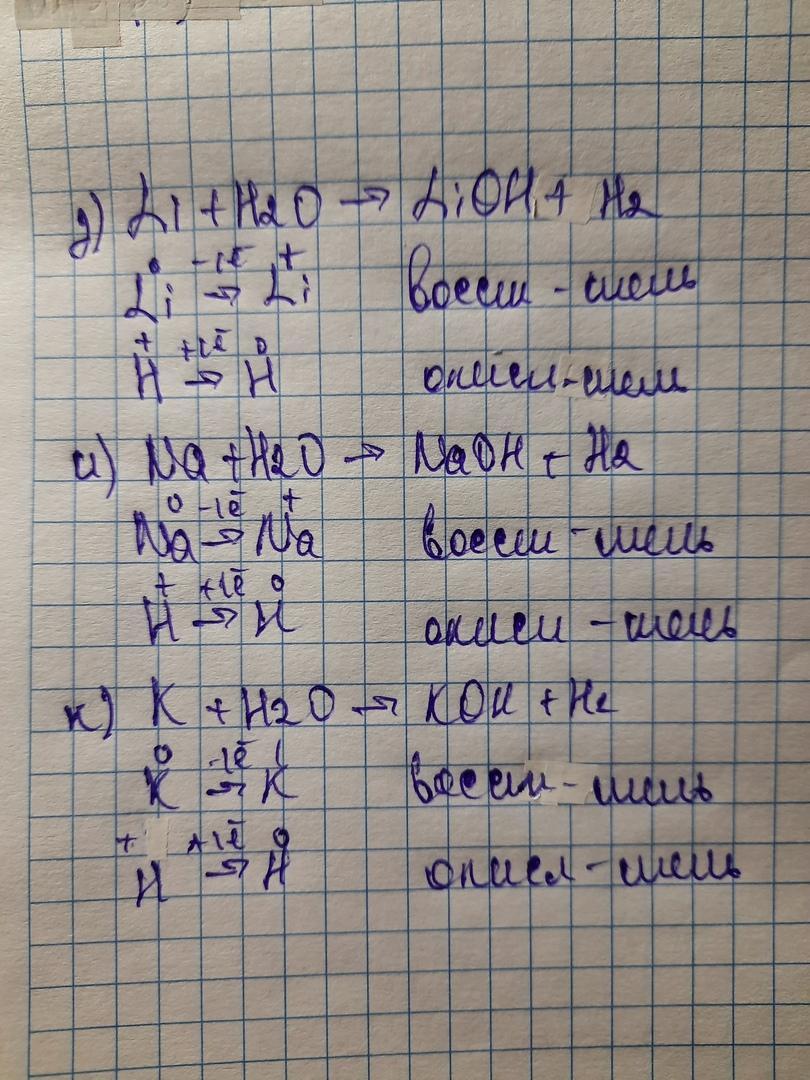 д) Li + H2O → LiOH + H2
0 -1ē +
Li → Li восст - тель
+ +1ē 0
H → H окисл-тел
и) Na + H2O → NaOH + H2
0 -1ē +
Na → Na восст - тель
+ +1ē 0
H → H окисл - тель
к) K + H2O → KOH + H2
0 -1ē
K → K восст - тель
+ +1ē 0
H → H окисл - тель